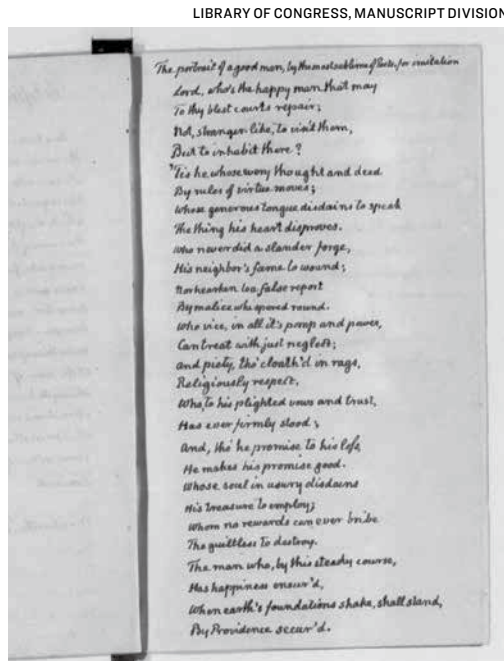 LIBRARY OF CONGRESS, MANUSCRIPT DIVISION
The portrait of a good man, by the most sublime of Poets, for imitation
Lord, who's the happy man that may
To thy blest courts repair;
Not, stranger-like, to visit them,
But to inhabit there?
'Tis he whose every thought and deed
By rules of virtue moves;
Whose generous tongue disdains to speak
The thing his heart disproves.
Who never did a slander forge,
His neighbor's fame to wound;
Nor hearken to a false report
By malice whispered round.
Who vice, in all it's pomp and power,
Can treat with just neglect;
And piety, tho' cloath'd in rags,
Religiously respect.
Who, to his plighted vows and trust,
Has ever firmly stood;
And, tho' he promise to his loss,
He makes his promise good.
Whose soul in usury disdains
His treasure to employ;
Whom no rewards can ever bribe
The guiltless to destroy.
The man who, by this steady course,
Has happiness ensur'd,
When earth's foundations shake, shall stand,
By Providence secur'd.